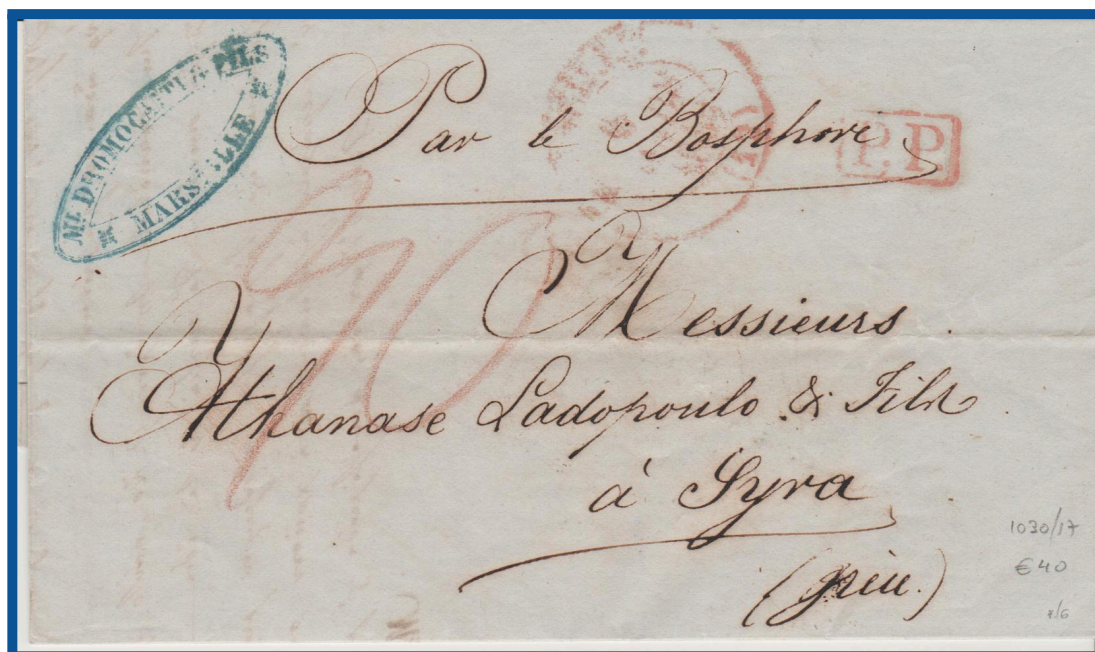 Ml. DROMOCAITI & FILS
MARSEILLE
Par le Bosphore
P.P.
90
Messieurs
Athanase Ladopoulo & Fils
à Syra
1030/17
€40